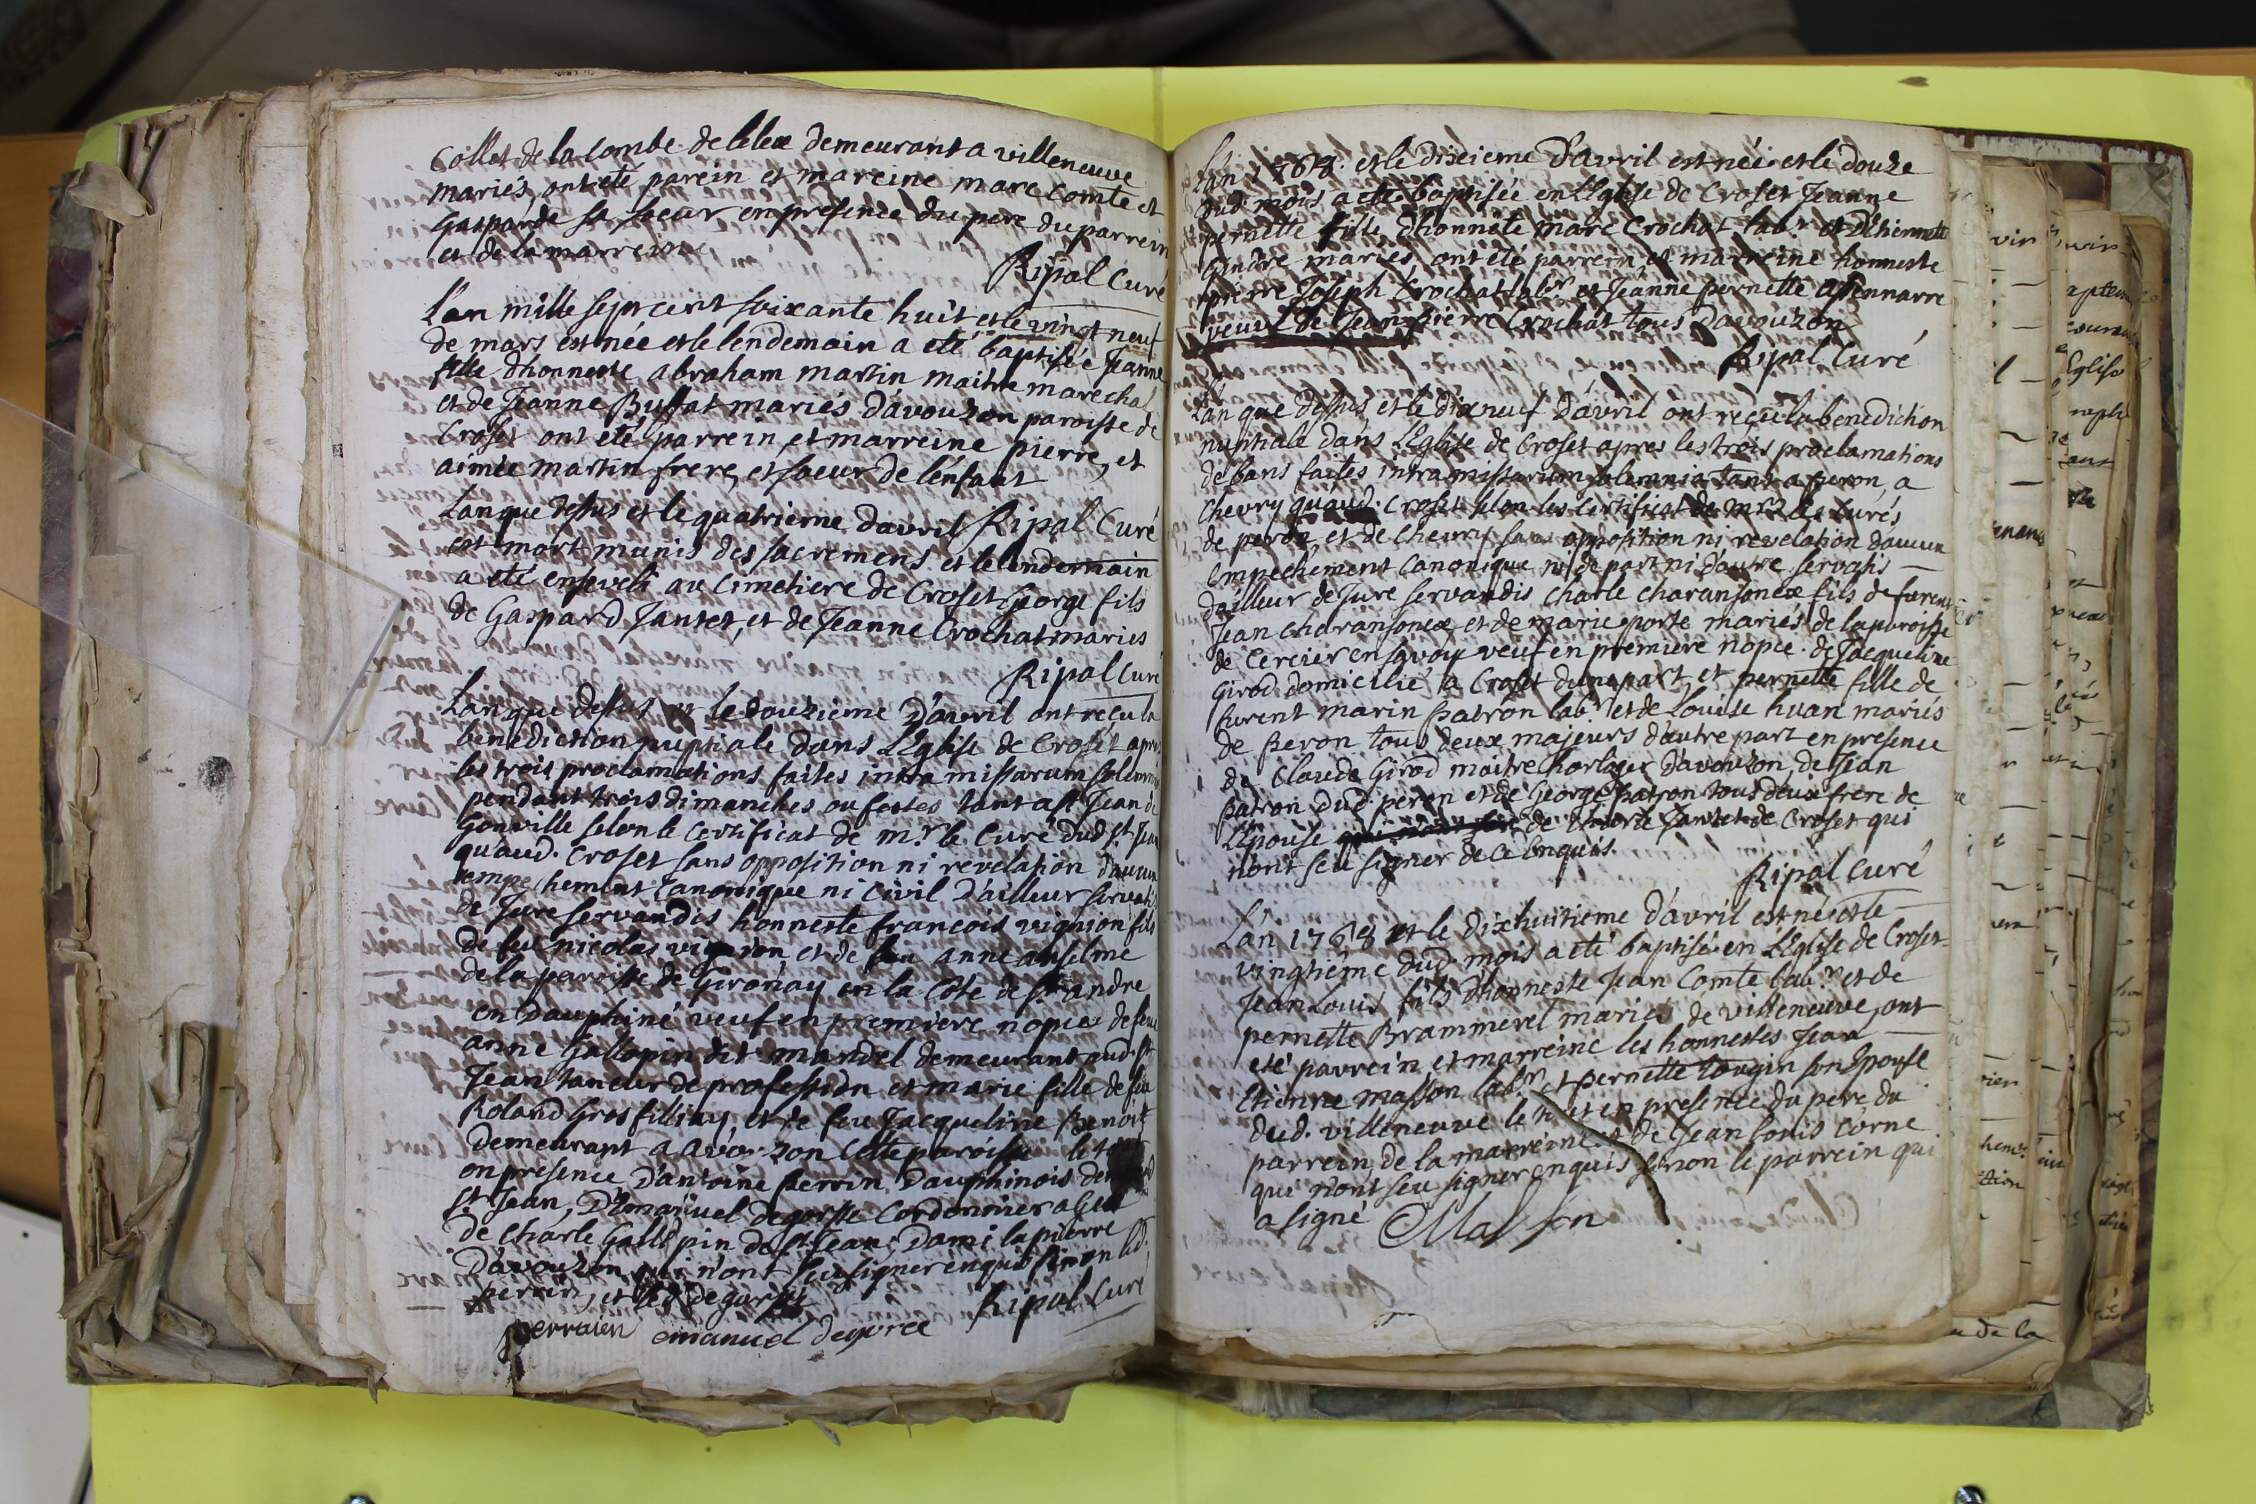 Collet de la Combe de lelex demeurant a villeneuve
mariés, ont été parein et mareine marc Comte et
Gasparde sa soeur en presence du pere du parrein
et de la marreine
Ripal Curé
L'an mille sept cent soixante huit et le vingt neuf
de mars est née et le lendemain a eté baptisée Jeanne
fille dhonneste abraham martin maitre marechal
et de Jeanne Buffat mariés davouzon paroisse de
Croset ont eté parrein, et marreine pierre, et
aimée martin frere, et soeur de l'énfant
Ripal Curé
Lan que dessus et le quatrieme davril
est mort munis des sacremens et le lendemain
a eté enseveli au Cimetiere de Croset George fils
de Gaspard Jantet, et de Jeanne Crochat mariés
Ripal Curé
Lan que dessus et le douzieme d'avril ont reçu la
benediction nuptiale dans L'Eglise de Croset apres
les trois proclamations faites intra missarum solemnia
pendant trois dimanches ou festes tant a st Jean de
Gonville selon le Certificat de mr. le Curé dud. st. Jean
qu'aud. Croset sans opposition ni revelation d'aucun
empechement Canonique ni Civil d'ailleur servatis
de Jure servandis honneste françois vignion fils
de feu nicolas vignion et de feu anne anselme
de la paroisse de Gironay en la Côte de st. andre
en Dauphiné veuf en premiere nopce de feue
anne Gallopin dit mandel demeurant aud. st
Jean taneur de profession et marie fille de feu
Roland Grosfilliay, et de feu Jacqueline Benoit
demeurant a avouzon Cette paroisse le tout
en presence D'antoine perrin Dauphinois
st. Jean, D'Emanuel degorsse Cordonnier a Gex
de Charle Gallopin de st. Jean, Dami lapierre
D'avouzon qui n'ont seu signer enquis sinon led.
perrin, et led. degorsse
Ripal Curé
perraien emanuel degorce
Lán 1768 et le dixieme D'avril est née et le douze
dud. mois a eté baptisée en L'Eglise de Croset Jeanne
pernette fille dhonnête marc Crochat lab.r et D'Etiennette
Gindre mariés, ont été parrein et marreine honneste
pierre Joseph Crochat labr. et Jeanne pernette
veuve de Jean pierre Crochat tous Davouzon
Ripal Curé
L'an que dessus et le dixneuf davril ont reçu la benediction
nuptiale dans L'Eglise de Croset apres les trois proclamations
de bans faites intra missarum solemnia tant a peron, a
Chevry quáud. Croset selon les Certificat de mrs les Curés
de peron, et de Chevry sans opposition ni revelation daucun
Empechement Canonique ni de part ni d'autre servatis
dailleur de Jure servandis Charle Charansonex fils de furent
Jean Charansonex, et de marie porte mariés de la paroisse
de Cercier en savoy veuf en premiere nopce de Jacqueline
Girod domicilié a Croset dune part et pernette fille de
furent marin patron lab.r et de Louise huan mariés
de peron tous deux majeurs dautre part en presence
de Claude Girod maitre horloger D'avouzon, de Jean
patron dud. peron et de George patron tous deux frere de
L'Epouse de Jantet de Croset qui
n'ont seu signer de ce enquis.
Ripal Curé
Lán 1768 et le dixhuitieme d'avril est né et le
vingtiême dud. mois a eté baptisé en L'Eglise de Croset
Jean Louis fils dhonneste Jean Comte lab.r et de
pernette Brammerel mariés de villeneuve, ont
eté parrein et marreine les honnestes Jean
Etienne masson labr. et pernette tougin son Epouse
dud. villeneuve le tout en presence du pere du
parrein de la marreine et de Jean Louis Corne
qui n'ont seu signer enquis sinon le parrein qui
a signé Masson